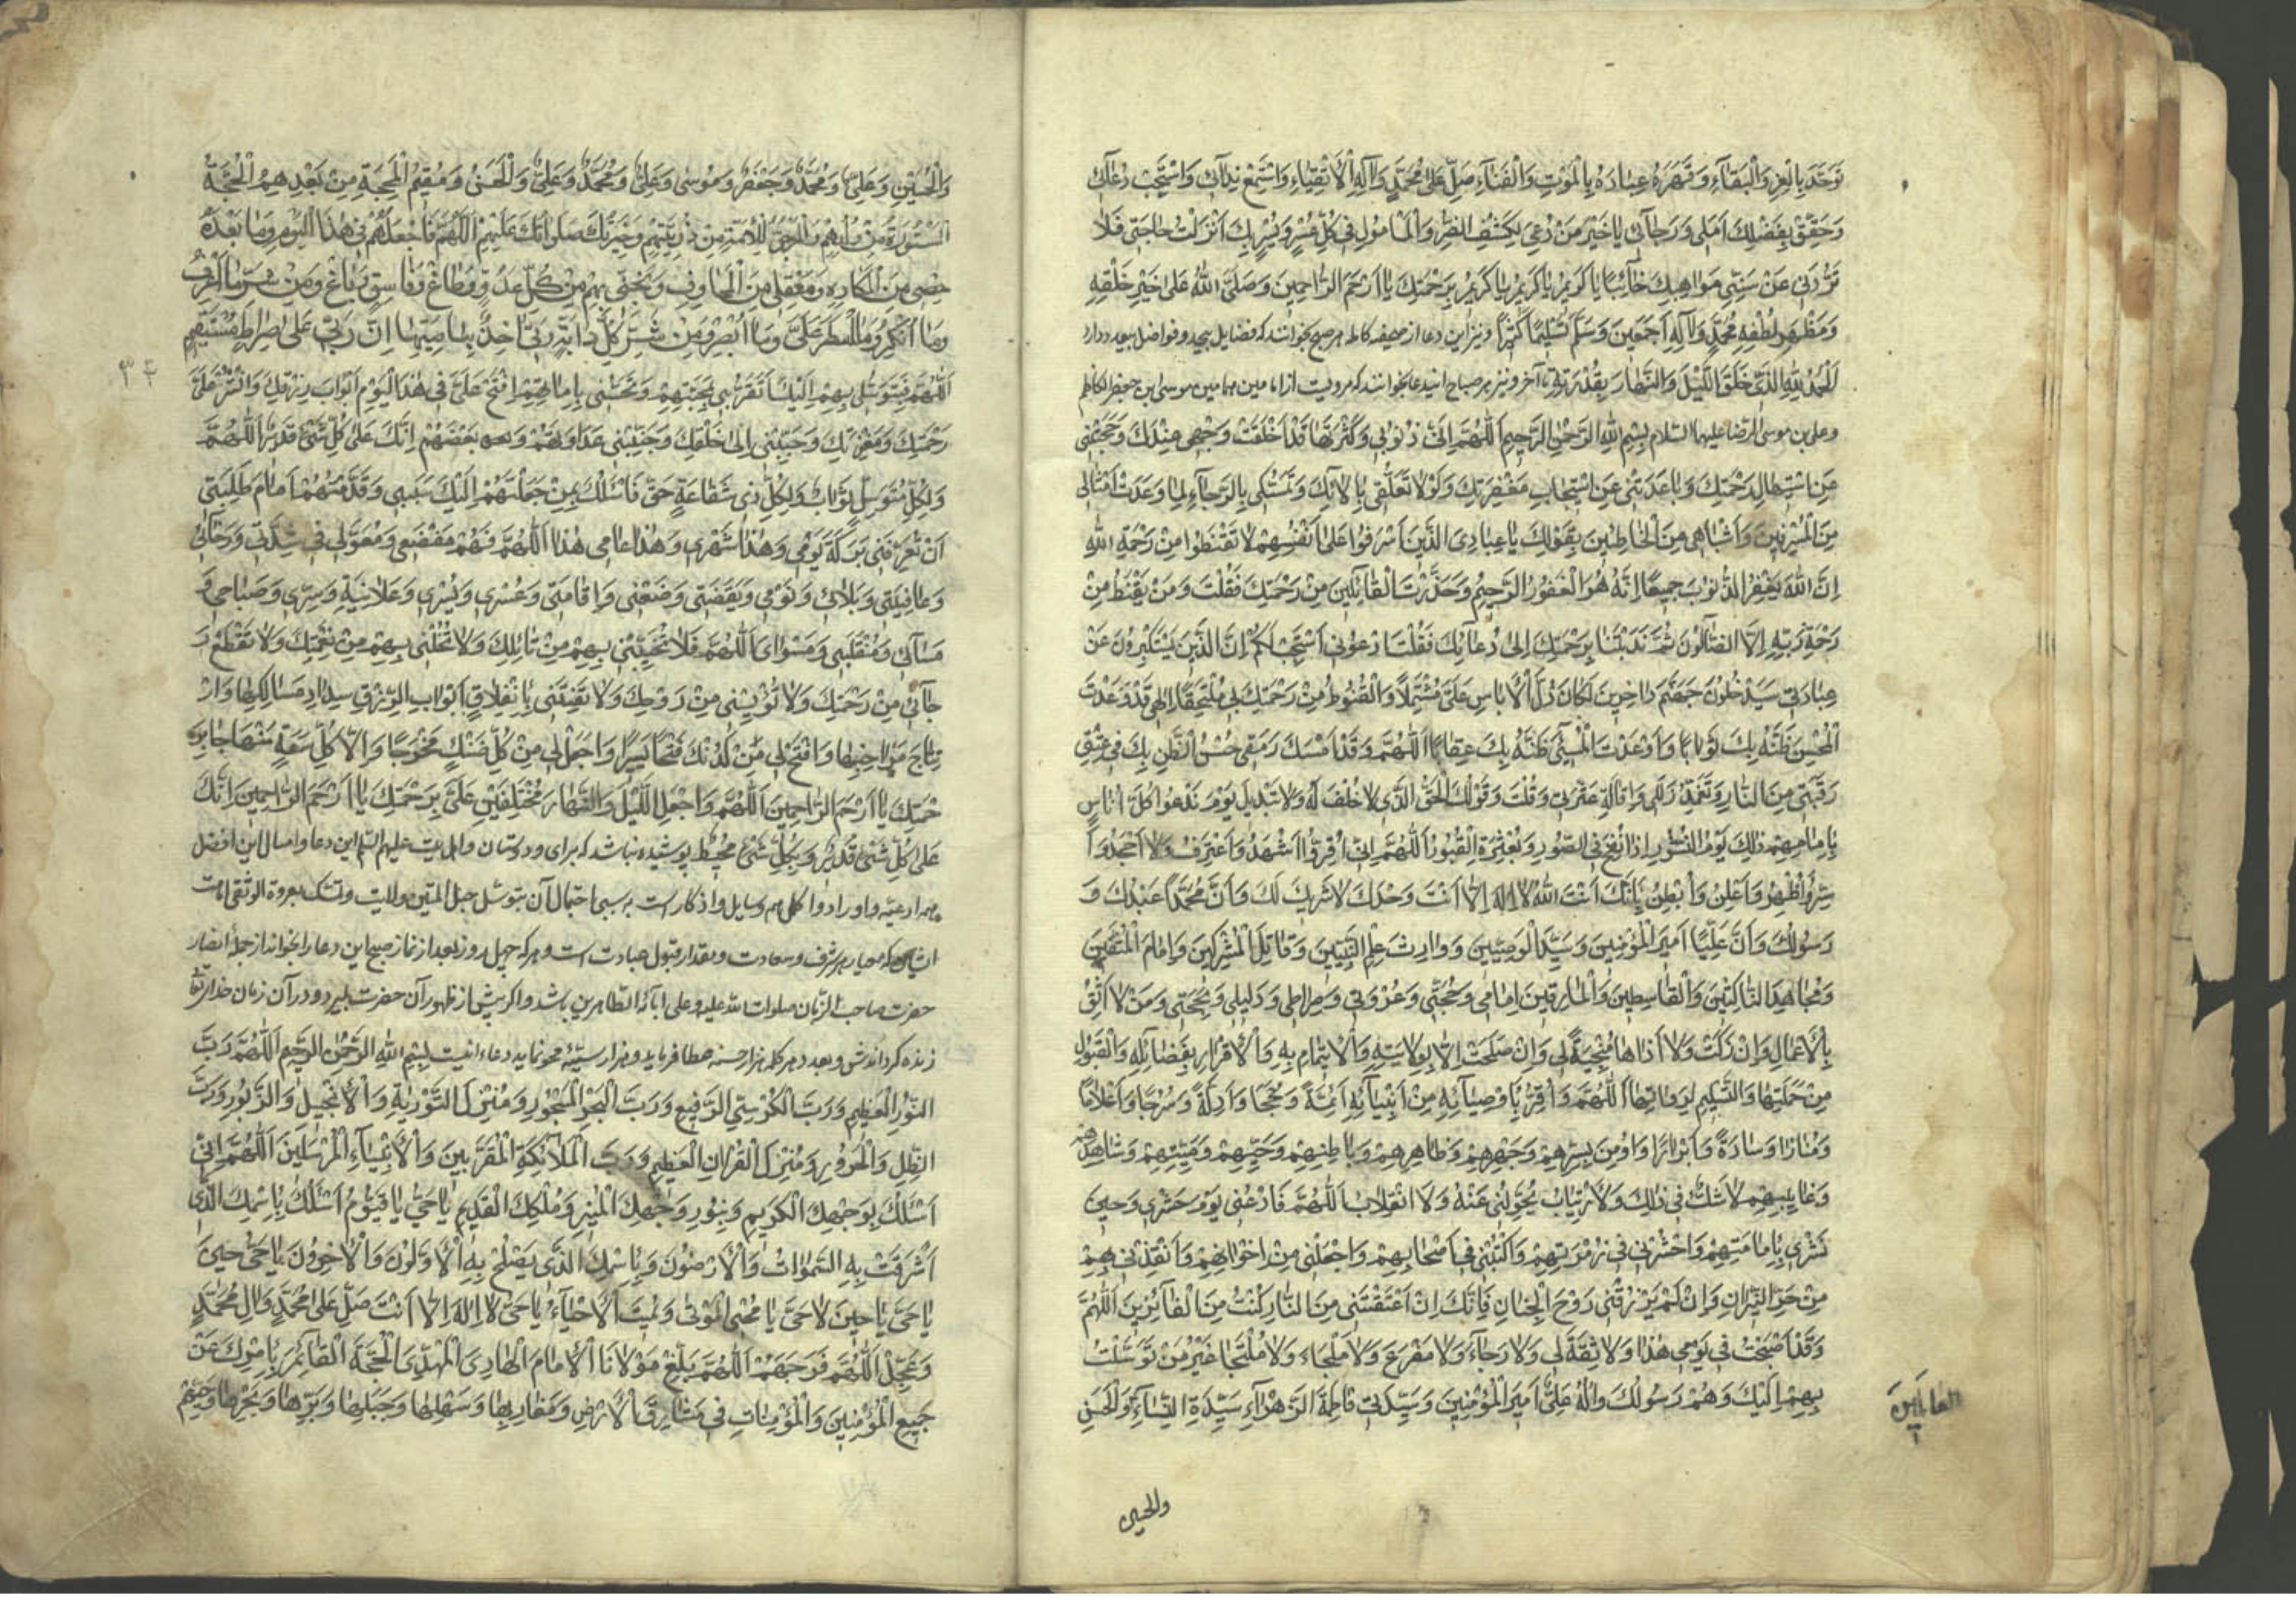 تَوَحَّدَ بِالْعِزِّ وَالْبَقَآءِ وَقَهَرَ عِبادَهُ بِالْمَوْتِ وَالْفَنَآءِ صَلِّ عَلى مُحَمَّدٍ وَالِهِ الْأَتْقِيٰاءِ وَاسْتَمِعْ نِدآئى وَاسْتَجِبْ دُعآئى
وَحَقِّقْ بِفَضْلِكَ اَمَلى وَرَجآئى يا خَيْرَ مَنْ دُعِىَ لِكَشْفِ الضُّرِّ وَالْمَامُولِ فى كُلِّ عُسْرٍ وَيُسْرٍ بِكَ اَنْزَلْتُ حاجَتى فَلا
تَرُدَّنى عَنْ سَنِىِّ مَواهِبِكَ خآئِبًا يا كَريمُ يا كَريمُ يا كَريمُ بِرَحْمَتِكَ يا اَرْحَمَ الرّاحِمينَ وَصَلَّى اللهُ عَلى خَيْرِ خَلْقِهِ
وَمَظْهَرِ لُطْفِهِ مُحَمَّدٍ وَالِهِ اَجْمَعينَ وَسَلَّمَ تَسْليمًا كَثيرًا ونيز اين دعا از صحيفه كامله هر صبح بخوانند كه فضايل بيحد وفواضل بيعدد دارد
اَلْحَمْدُ لِلهِ الَّذى خَلَقَ اللَّيْلَ وَالنَّهارَ بِقُدْرَتِهِ تا آخر ونيز هر صباح اين دعا بخوانند كه مرويست از امامين همامين موسى بن جعفر الكاظم
وعلى بن موسى الرضا عليهما السلام بِسْمِ اللهِ الرَّحْمنِ الرَّحيمِ اَللّهُمَّ اِنَّ ذُنُوبى وَكَثْرَتَها قَدْ اَخْلَقَتْ وَجْهى عِنْدَكَ وَحَجَبَتْنى
عَنِ اسْتيهالِ رَحْمَتِكَ وَباعَدَتْنى عَنِ اسْتيجابِ مَغْفِرَتِكَ وَلَوْلا تَعَلُّقى بِالائِكَ وَتَمَسُّكى بِالرَّجآءِ لِما وَعَدْتَ اَمْثالى
مِنَ الْمُسْرِفينَ وَاَشْباهى مِنَ الْخاطِئينَ بِقَوْلِكَ يا عِبادِىَ الَّذينَ اَسْرَفُوا عَلى اَنْفُسِهِمْ لا تَقْنَطُوا مِنْ رَحْمَةِ اللهِ
اِنَّ اللهَ يَغْفِرُ الذُّنُوبَ جَميعًا اِنَّهُ هُوَ الْغَفُورُ الرَّحيمُ وَحَذَّرْتَ الْقانِطينَ مِنْ رَحْمَتِكَ فَقُلْتَ وَمَنْ يَقْنَطُ مِنْ
رَحْمَةِ رَبِّهِ اِلَّا الضّآلُّونَ ثُمَّ نَدَبْتَنا بِرَحْمَتِكَ اِلى دُعآئِكَ فَقُلْتَ ادْعُونى اَسْتَجِبْ لَكُمْ اِنَّ الَّذينَ يَسْتَكْبِرُونَ عَنْ
عِبادَتى سَيَدْخُلُونَ جَهَنَّمَ داخِرينَ لَكانَ ذُلُّ الْاِياسِ عَلَىَّ مُشْتَمِلًا وَالْقُنُوطُ مِنْ رَحْمَتِكَ بى مُلْتَحِقًا اِلهى قَدْ وَعَدْتَ
الْمُحْسِنَ ظَنَّهُ بِكَ ثَوابًا وَاَوْعَدْتَ الْمُسِئَ ظَنَّهُ بِكَ عِقابًا اَللّهُمَّ وَقَدْ اَمْسَكَ رَمَقى حُسْنُ الظَّنِّ بِكَ فى عِتْقِ
رَقَبَتى مِنَ النّارِ وَتَغَمُّدِ زَلَلى وَاِقالَةِ عَثْرَتى وَقُلْتَ وَقَوْلُكَ الْحَقُّ الَّذى لا خُلْفَ لَهُ وَلا تَبْديلَ يَوْمَ نَدْعُوا كُلَّ اُناسٍ
بِاِمامِهِمْ ذلِكَ يَوْمُ النُّشُورِ اِذا نُفِخَ فِى الصُّورِ وَبُعْثِرَةِ الْقُبُورُ اَللّهُمَّ اِنّى اُقِرُّ وَاَشْهَدُ وَاَعْتَرِفُ وَلا اَجْحَدُ وَاُ
سِرُّ وَاُظْهِرُ وَاُعْلِنُ وَاُبْطِنُ بِاَنَّكَ اَنْتَ اللهُ لا اِلهَ اِلّا اَنْتَ وَحْدَكَ لا شَريكَ لَكَ وَاَنَّ مُحَمَّدًا عَبْدُكَ وَ
رَسُولُكَ وَاَنَّ عَلِيًّا اَميرُ الْمُؤْمِنينَ وَسَيِّدُ الْوَصِيّينَ وَوارِثُ عِلْمِ النَّبِيّينَ وَقاتِلُ الْمُشْرِكينَ وَاِمامُ الْمُتَّقينَ
وَمُجاهِدُ النّاكِثينَ وَالْقاسِطينَ وَالْمارِقينَ اِمامى وَحُجَّتى وَعُرْوَتى وَصِراطى وَدَليلى وَمَحَجَّتى وَمَنْ لا اَثِقُ
بِالْاَعْمالِ وَاِنْ زَكَتْ وَلا اَراها مُنْجِيَةً لى وَاِنْ صَلَحَتْ اِلّا بِوِلايَتِهِ وَالْاِيتِمامِ بِهِ وَالْاِقْرارِ بِفَضآئِلِهِ وَالْقَبُولِ
مِنْ حَمَلَتِها وَالتَّسْليمِ لِرُواتِها اَللّهُمَّ وَاُقِرُّ بِاَوْصِيآئِهِ مِنْ اَبْنِيآئِهِ اَئِمَّةً وَحُجَجًا وَاَدِلَّةً وَسُرُجًا وَاَعْلامًا
وَمَنارًا وَسادَةً وَاَبْرارًا وَاُومِنُ بِسِرِّهِمْ وَجَهْرِهِمْ وَظاهِرِهِمْ وَباطِنِهِمْ وَحَيِّهِمْ وَمَيِّتِهِمْ وَشاهِدِهِمْ
وَغايِبِهِمْ لا شَكَّ فى ذلِكَ وَلَا ارْتِيابَ يُحَوِّلُنى عَنْهُ وَلَا انْقِلابَ اَللّهُمَّ فَادْعُنى يَوْمَ حَشْرى وَحينَ
نَشْرى بِاِمامَتِهِمْ وَاحْشُرْنى فى زُمْرَتِهِمْ وَاكْتُبْنى فى اَصْحابِهِمْ وَاجْعَلْنى مِنْ اِخْوانِهِمْ وَاَنْقِذْنى بِهِمْ
مِنْ حَرِّ النّيرانِ وَاِنْ لَمْ تَرْزُقْنى رَوْحَ الْجِنانِ فَاِنَّكَ اِنْ اَعْتَقْتَنى مِنَ النّارِ كُنْتُ مِنَ الْفآئِزينَ اَللّهُمَّ
وَقَدْ اَصْبَحْتُ فى يَوْمى هذا وَلا ثِقَةَ لى وَلا رَجآءَ وَلا مَفْزَعَ وَلا مَلْجَاءَ وَلا مُلْتَجَا غَيْرُ مَنْ تَوَسَّلْتُ
بِهِمْ اِلَيْكَ وَهُمْ رَسُولُكَ وَالُهُ عَلِىٌّ اَميرُ الْمُؤْمِنينَ وَسَيِّدَتى فاطِمَةُ الزَّهْرآءِ سَيِّدَةِ النِّسآءِ وَالْحَسَنِ
العالَمينَ
والحسين
وَالْحُسَيْنِ وَعَلِىٌّ وَمُحَمَّدٌ وَجَعْفَرٌ وَمُوسى وَعَلِىٌّ وَمُحَمَّدٌ وَعَلِىٌّ وَالْحَسَنُ وَمُقيمُ الْمَحَجَّةِ مِنْ بَعْدِهِمُ الْحُجَّةُ
الْمَسْتُورَةُ مِنْ وُلْدِهِمْ وَالْمَرْجُوُّ لِلْاُمَّةِ مِنْ ذُرِّيَّتِهِمْ وَخِيَرَتُكَ صَلَواتُكَ عَلَيْهِمْ اَللّهُمَّ فَاجْعَلْهُمْ فى هذَا الْيَوْمِ وَما بَعْدَهُ
حِصْنى مِنَ الْمَكارِهِ وَمَعْقِلى مِنَ الْمَخاوِفِ وَنَجِّنى بِهِمْ مِنْ كُلِّ عَدُوٍّ وَطاغٍ وَفاسِقٍ وَباغٍ وَمِنْ شَرِّ ما اَعْرِفُ
وَما اُنْكِرُ وَمَا اسْتَتَرَ عَلَىَّ وَما اُبْصِرُ وَمِنْ شَرِّ كُلِّ دابَّةٍ رَبّى اخِذٌ بِناصِيَتِها اِنَّ رَبّى عَلى صِراطٍ مُسْتَقيمٍ
اَللّهُمَّ فَبِتَوَسُّلى بِهِمْ اِلَيْكَ وَتَقَرُّبى بِمَحَبَّتِهِمْ وَتَحَصُّنى بِاِمامَتِهِمْ افْتَحْ عَلَىَّ فى هذَا الْيَوْمِ اَبْوابَ رِزْقِكَ وَانْشُرْ عَلَىَّ
رَحْمَتَكَ وَمَغْفِرَتَكَ وَحَبِّبْنى اِلى خَلْقِكَ وَجَنِّبْنى عَداوَتَهُمْ وَبُغْضَهُمْ اِنَّكَ عَلى كُلِّ شَىْءٍ قَديرٌ اَللّهُمَّ
وَلِكُلِّ مُتَوَسِّلٍ ثَوابٌ وَلِكُلِّ ذى شَفاعَةٍ حَقٌّ فَاَسْئَلُكَ بِمَنْ جَعَلْتَهُمْ اِلَيْكَ سَبَبى وَقَدَّمْتَهُمْ اَمامَ طَلِبَتى
اَنْ تُعَرِّفَنى بَرَكَةَ يَوْمى وَهذا شَهْرى وَهذا عامى هذا اَللّهُمَّ فَهُمْ مَفْزَعى وَمُعَوَّلى فى شِدَّتى وَرَخآئى
وَعافِيَتى وَبَلائى وَنَوْمى وَيَقَضَتى وَضَعْنى وَاِقامَتى وَعُسْرى وَيُسْرى وَعَلانِيَةِ وَسِرّى وَصَباحى وَ
مَسآئى وَمُنْقَلَبى وَمَثْواىَ اَللّهُمَّ فَلا تُخَيِّبْنى بِهِمْ مِنْ نائِلِكَ وَلا تُخْلِنى بِهِمْ مِنْ نِعْمَتِكَ وَلا تَقْطَعْ رَ
جآئى مِنْ رَحْمَتِكَ وَلا تُؤْيِسْنى مِنْ رَوْحِكَ وَلا تَفْتِنّى بِانْغِلاقِ اَبْوابِ الرِّزْقِ وَانْسِدادِ مَسالِكِها وَارْ
تِتاجِ مَذاهِبِها وَافْتَحْ لى مِنْ لَدُنْكَ فَتْحًا يَسيرًا وَاجْعَلْ لى مِنْ كُلِّ ضَنْكٍ مَخْرَجًا وَاِلى كُلِّ سَعَةٍ مَنْهَجًا بِرَ
حْمَتِكَ يا اَرْحَمَ الرّاحِمينَ اَللّهُمَّ وَاجْعَلِ اللَّيْلَ وَالنَّهارَ مُخْتَلِفَيْنِ عَلَىَّ بِرَحْمَتِكَ يا اَرْحَمَ الرّاحِمينَ اِنَّكَ
عَلى كُلِّ شَىْءٍ قَديرٌ وَبِكُلِّ شَىْءٍ مُحيطٌ پوشيده نباشد كه براى دوستان اهل بيت عليهم السلم اين دعا وامثال اين افضل
همه ادعيه واوراد واكمل همه وسايل واذكار است به سبب اشتمال آن بتوسل حبل المتين ولايت وتمسك بعروة الوثقى امامت
ايشان كه معيار هر شرف وسعادت ومقدار قبول عبادت است وهر كه چهل روز بعد از نماز صبح اين دعا را بخواند از جمله انصار
حضرت صاحب الزمان صلوات الله عليه وعلى ابائه الطاهرين باشد واگر پيش از ظهور آن حضرت بميرد ودر آن زمان خداى تعالى
زنده گرداندش وبعدد هر كلمه هزار حسنه عطا فرمايد وهزار سيئه محو نمايد دعا اينست بِسْمِ اللهِ الرَّحْمنِ الرَّحيمِ اَللّهُمَّ رَبَّ
النُّورِ الْعَظيمِ وَرَبَّ الْكُرْسِىِّ الرَّفيعِ وَرَبَّ الْبَحْرِ الْمَسْجُورِ وَمُنْزِلَ التَّوْرٰيةِ وَالْاِنْجيلِ وَالزَّبُورِ وَرَبَّ
الظِّلِّ وَالْحَرُورِ وَمُنْزِلَ الْقُرْانِ الْعَظيمِ وَرَبَّ الْمَلآئِكَةِ الْمُقَرَّبينَ وَالْاَنْبِيآءِ الْمُرْسَلينَ اَللّهُمَّ اِنّى
اَسْئَلُكَ بِوَجْهِكَ الْكَريمِ وَبِنُورِ وَجْهِكَ الْمُنيرِ وَمُلْكِكَ الْقَديمِ يا حَىُّ يا قَيُّومُ اَسْئَلُكَ بِاسْمِكَ الَّذى
اَشْرَقَتْ بِهِ السَّمواتُ وَالْاَرَضُونَ وَبِاسْمِكَ الَّذى يَصْلَحُ بِهِ الْاَوَّلُونَ وَالْاخِرُونَ يا حَىُّ حينَ
يا حَىُّ يا حينَ لا حَىَّ يا مُحْيِىَ الْمَوْتى وَمُميتَ الْاَحْيآءِ يا حَىُّ لا اِلهَ اِلّا اَنْتَ صَلِّ عَلى مُحَمَّدٍ وَالِ مُحَمَّدٍ
وَعَجِّلِ اَللّهُمَّ فَرَجَهُمْ اَللّهُمَّ بَلِّغْ مَوْلانَا الْاِمامَ الْهادِىَ الْمَهْدِىَّ الْحُجَّةَ الْقآئِمَ بِاَمْرِكَ عَنْ
جَميعِ الْمُؤْمِنينَ وَالْمُؤْمِناتِ فى مَشارِقِ الْاَرْضِ وَمَغارِبِها وَسَهْلِها وَجَبَلِها وَبَرِّها وَبَحْرِها وَحَيِّهِمْ